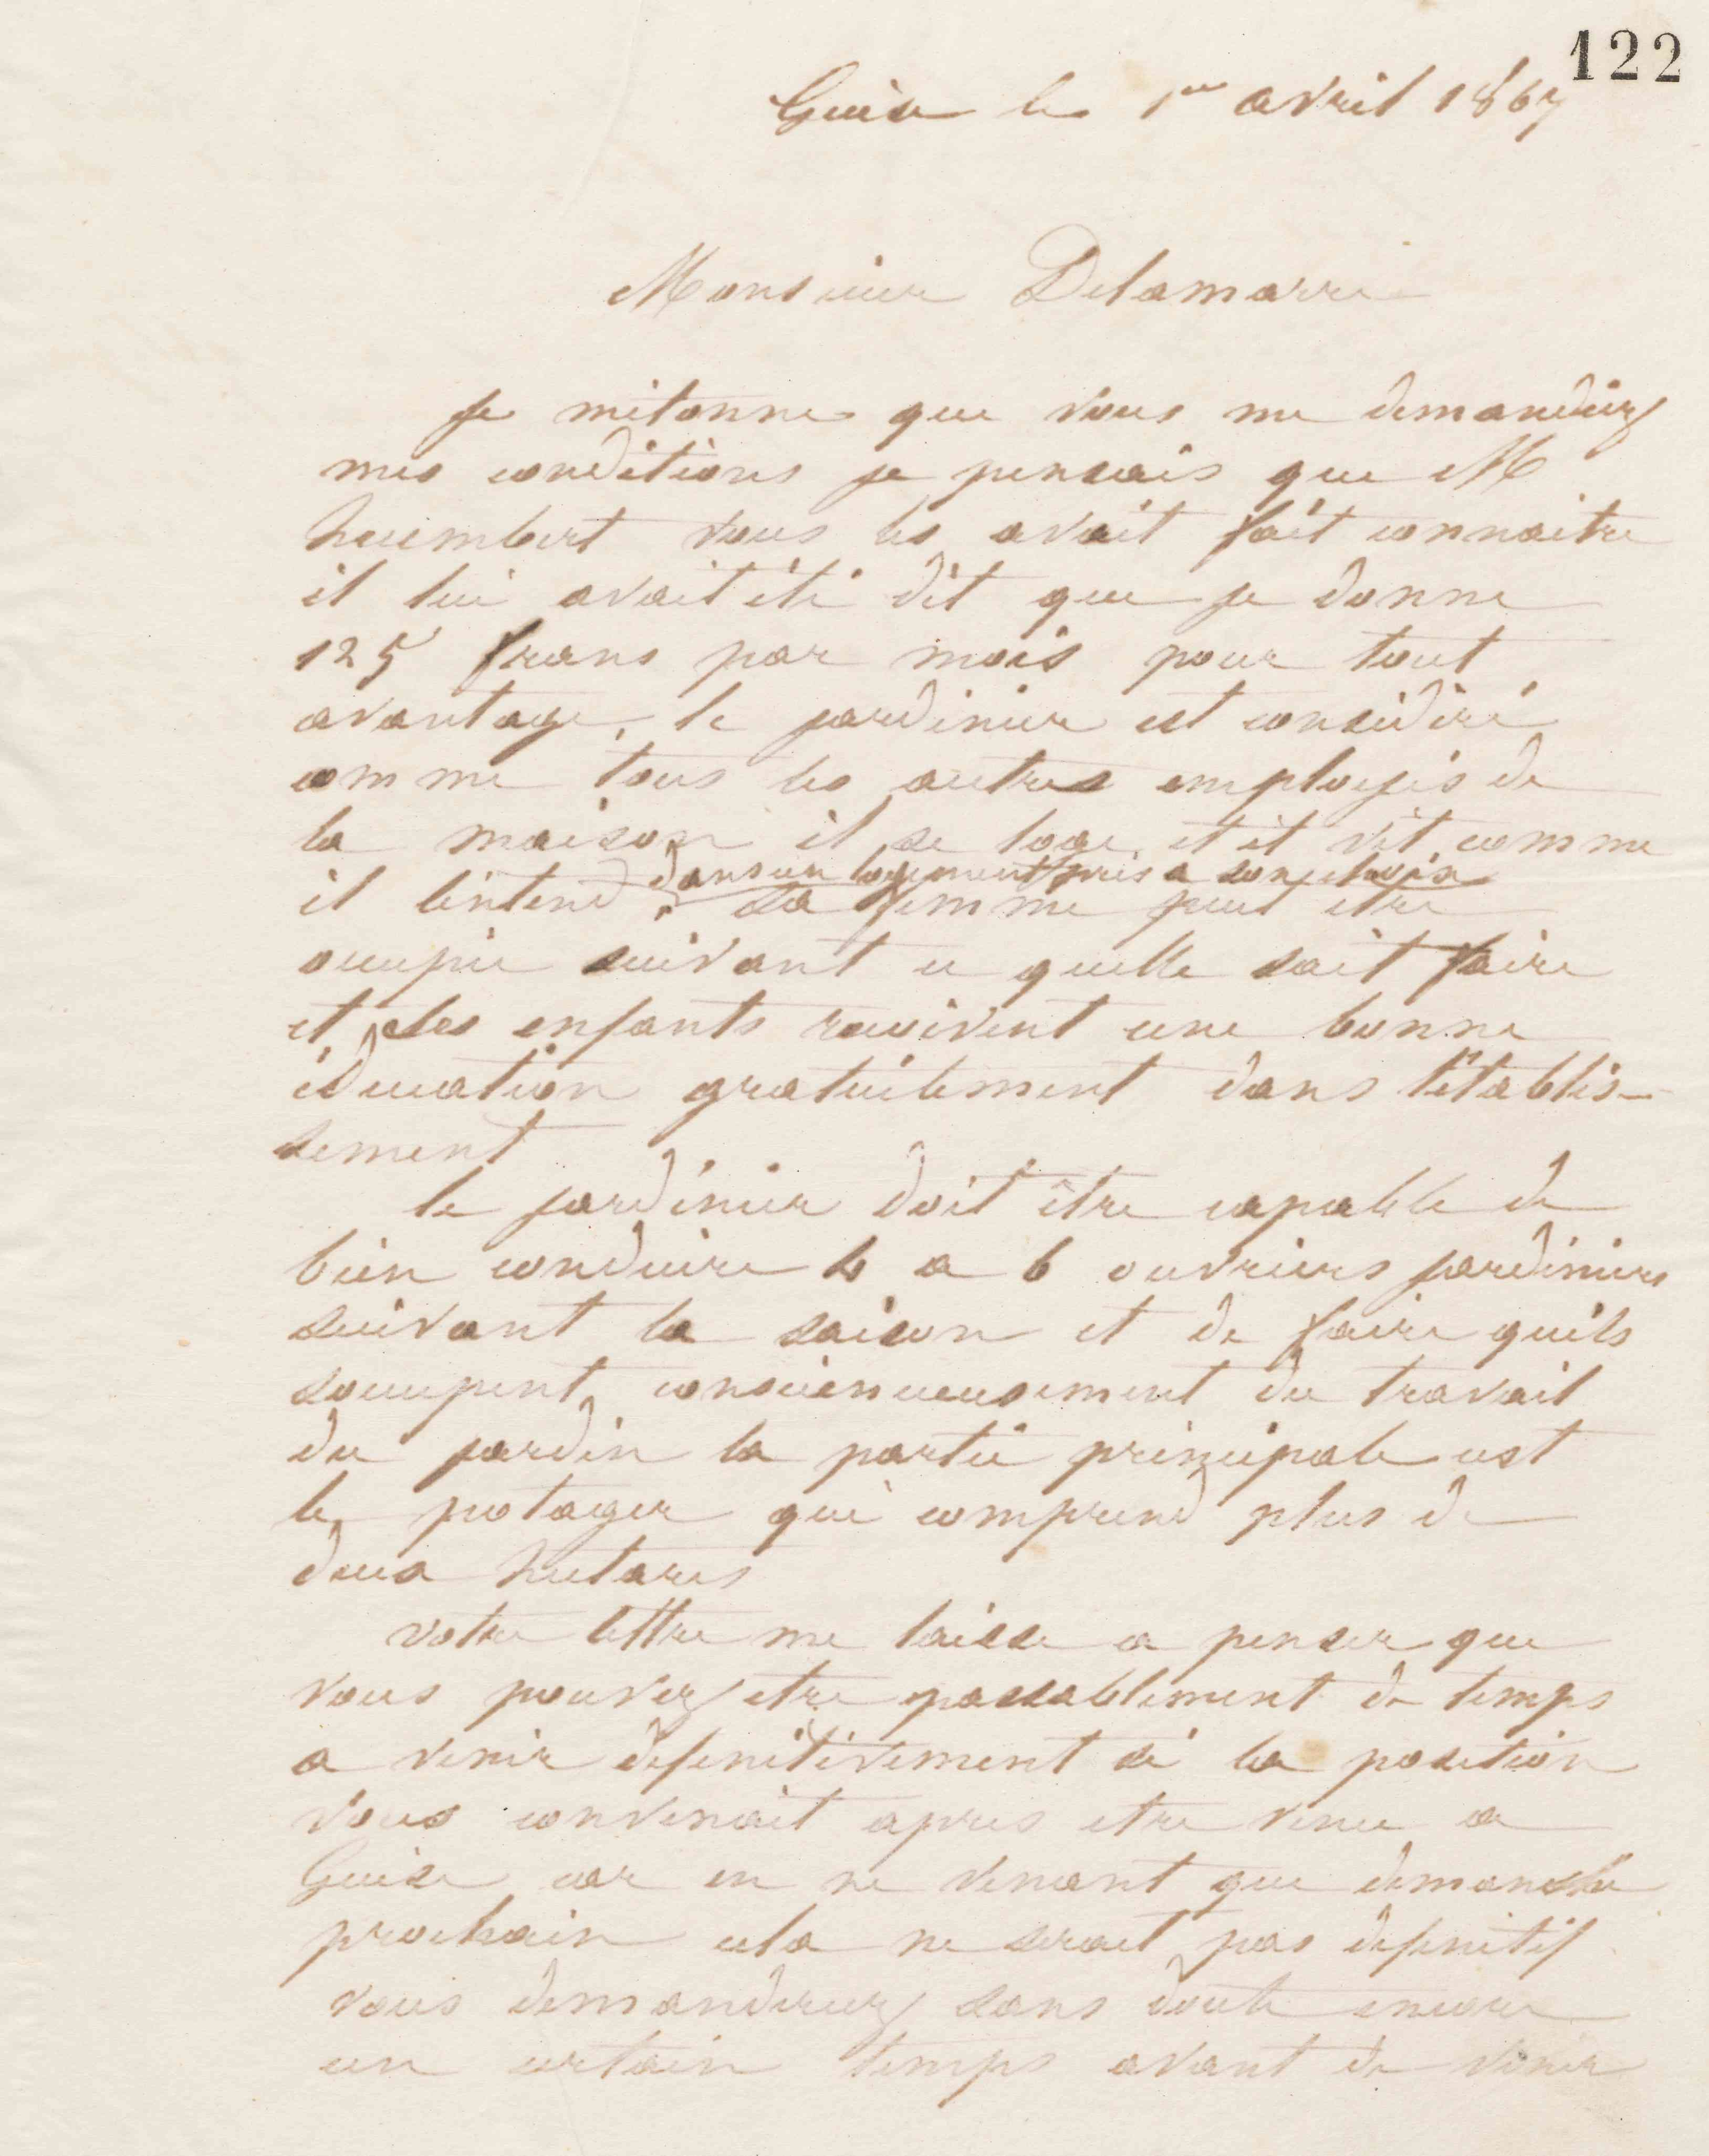 122
Guise le 1er avril 1867
Monsieur Delamarre
Je m'etonne que vous me demandiez
mes conditions je pensais que M
humbert vous les avait fait connaitre
il lui avait été dit que je donne
125 frans par mois pour tout
avantage, le jardinier est considéré
comme tous les autres employés de
la maison il se loge et il vit comme
dans un logement pris a son choix
il lentend, sa femme peut etre
occupée suivant ce quelle sait faire
et les enfants recoivent une bonne
éducation gratuitement dans l'établis-
sement
le jardinier doit être capable de
bien conduire 4 a 6 ouvriers jardiniers
suivant la saison et de faire quils
soccupent consciencieusement du travail
du jardin la partie principale est
le potager qui comprend plus de
deux hectares
votre lettre me laisse a penser que
vous pouvez etre passablement de temps
a venir definitivement si la position
vous convenait apres etre venu a
Guise car en ne venant que dimanche
prochain cela ne serait pas definitif
vous demanderiez sans doute encore
un certain temps avant de venir